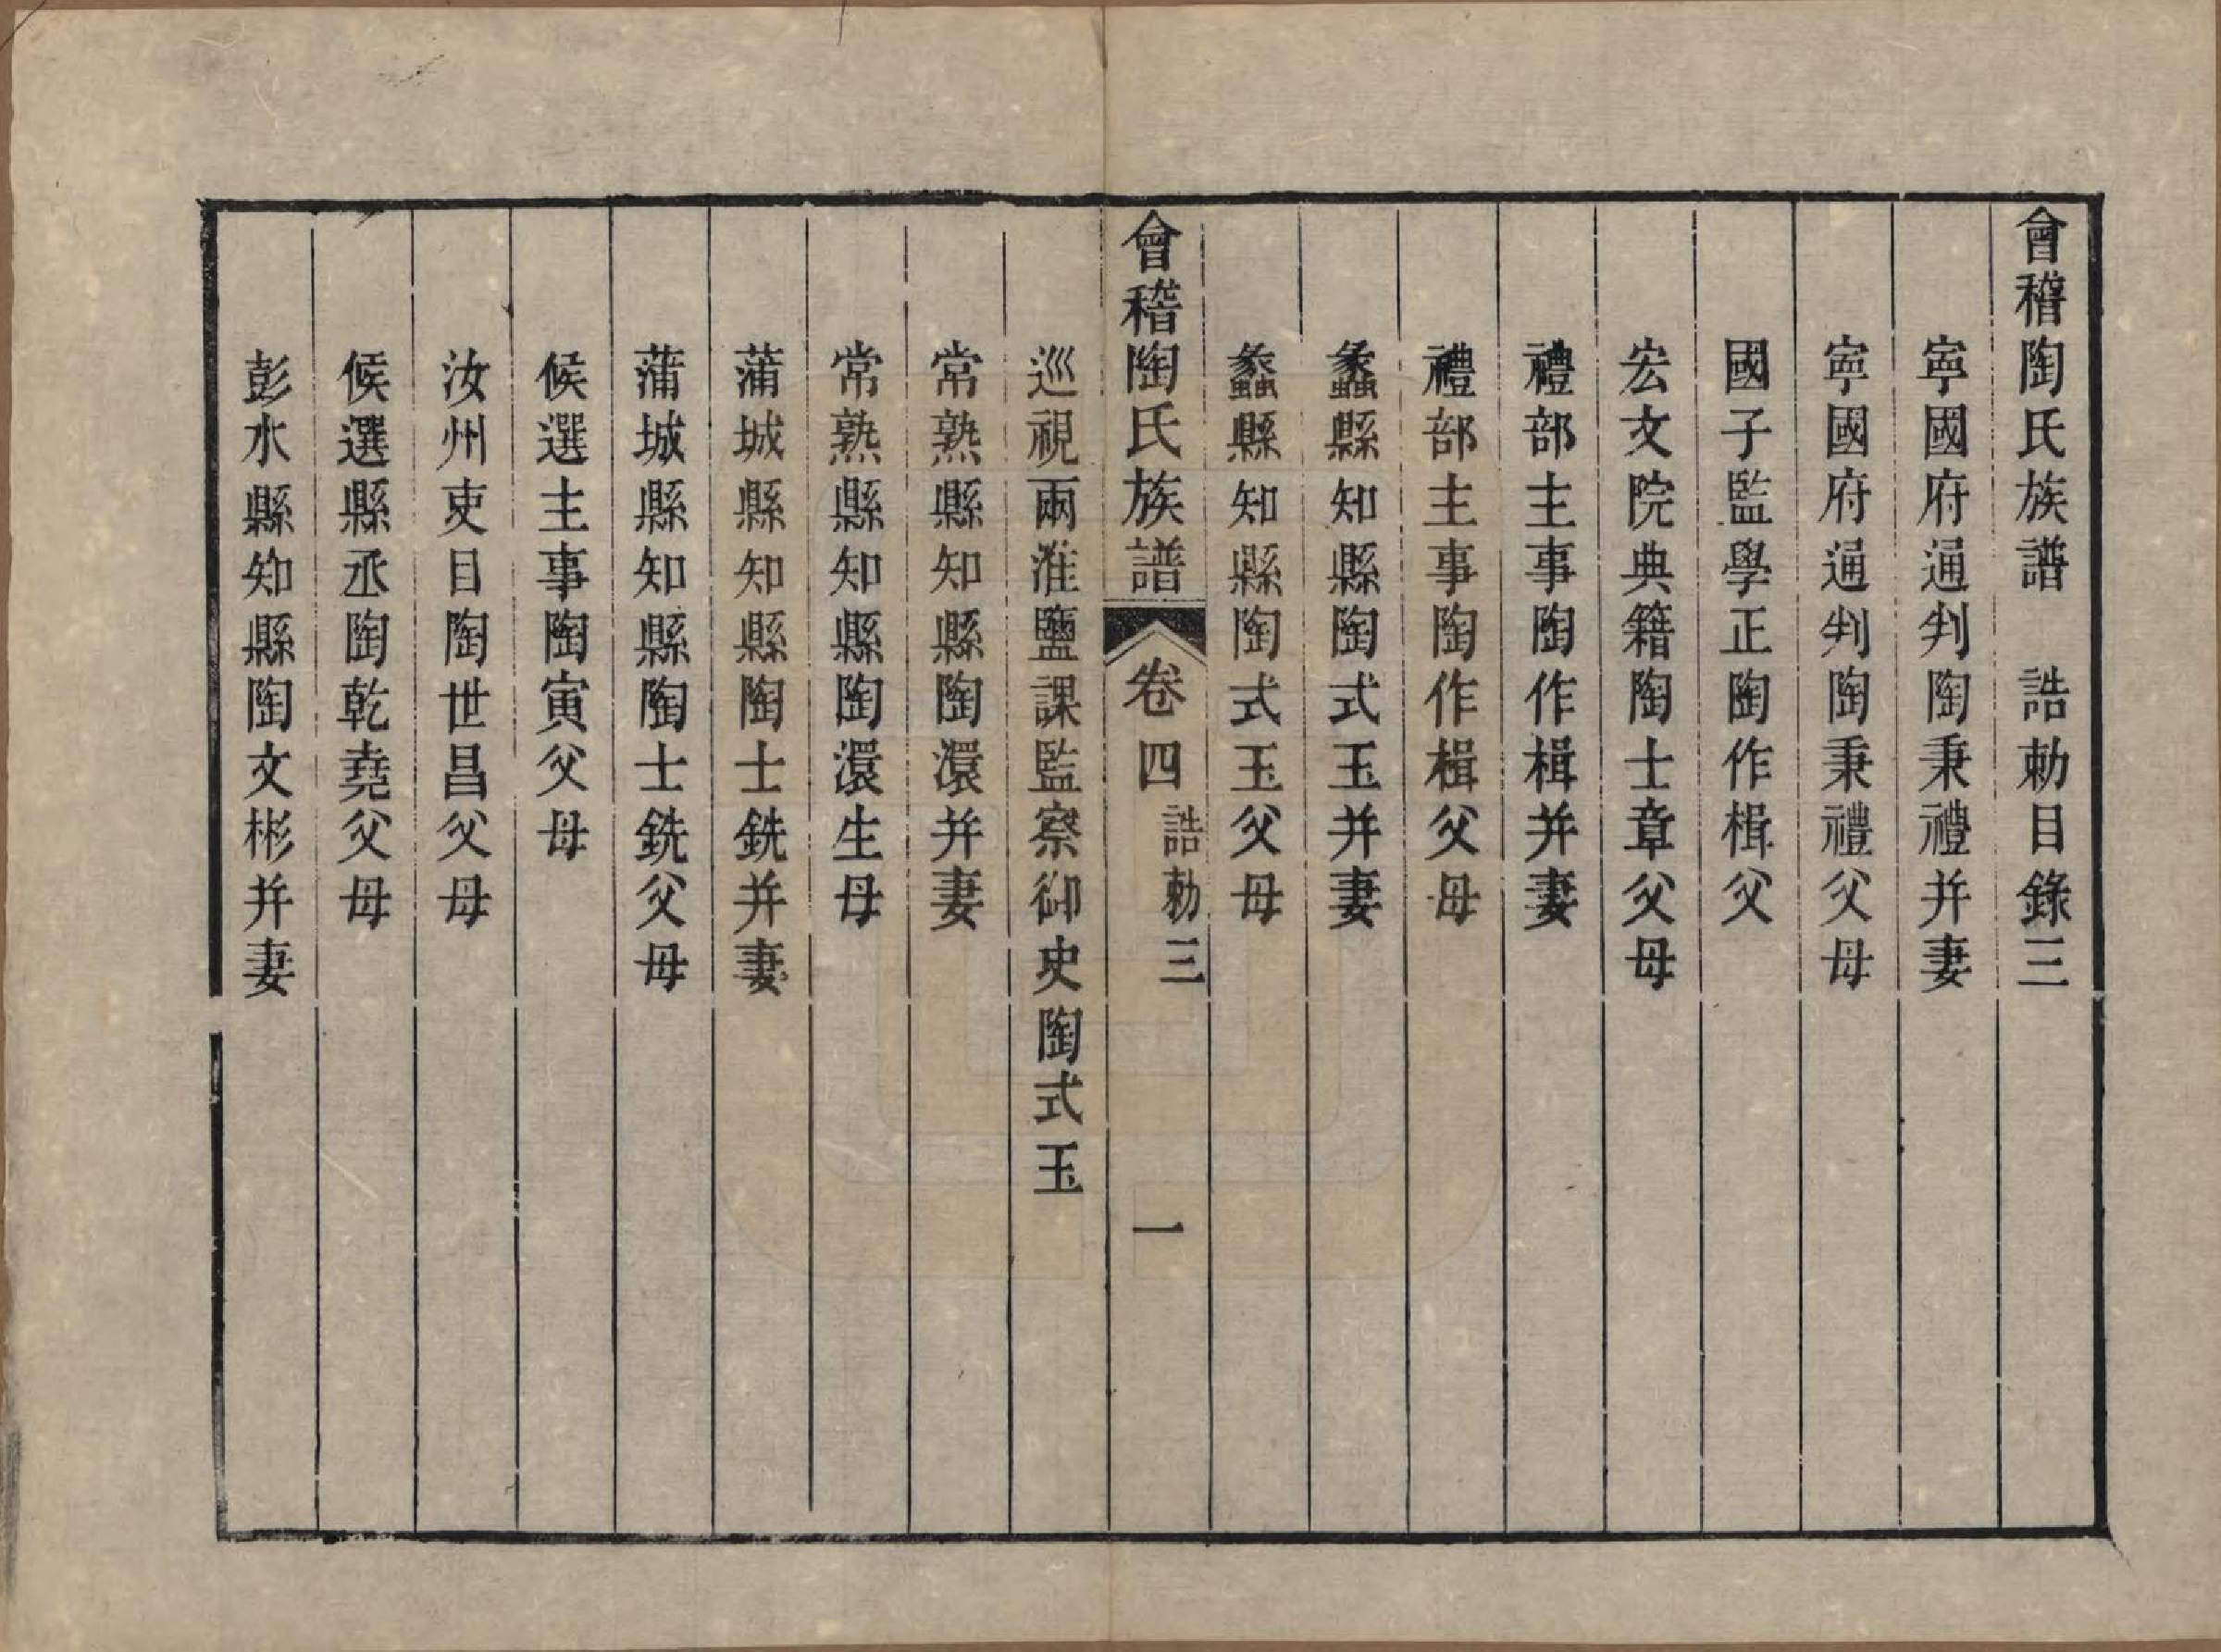 會稽陶氏族譜　誥勅目錄三
寍國府通判陶秉禮并妻
寍國府通判陶秉禮父母
國子監學正陶作楫父
宏文院典籍陶士章父母
禮部主事陶作楫并妻
禮部主事陶作楫父母
蠡縣知縣陶式玉并妻
蠡縣知縣陶式玉父母
會稽陶氏族譜　卷四　誥勅三　一
巡視兩淮鹽課監察御史陶式玉
常熟縣知縣陶澴并妻
常熟縣知縣陶澴生母
蒲城縣知縣陶士銑并妻
蒲城縣知縣陶士銑父母
候選主事陶寅父母
汝州吏目陶世昌父母
候選縣丞陶乾堯父母
彭水縣知縣陶文彬并妻